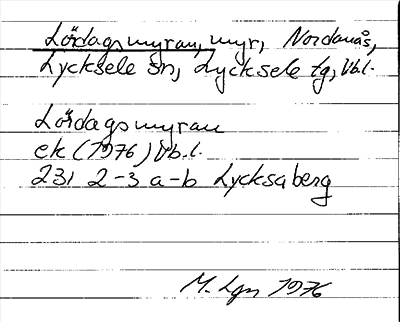 Lördagsmyran, myr, Nordanås,
Lycksele sn, Lycksele tg, Vb.l.
Lördagsmyran
ek (1976) Vb.l.
231 2-3 a-b Lycksaberg
M. Lgn 1976